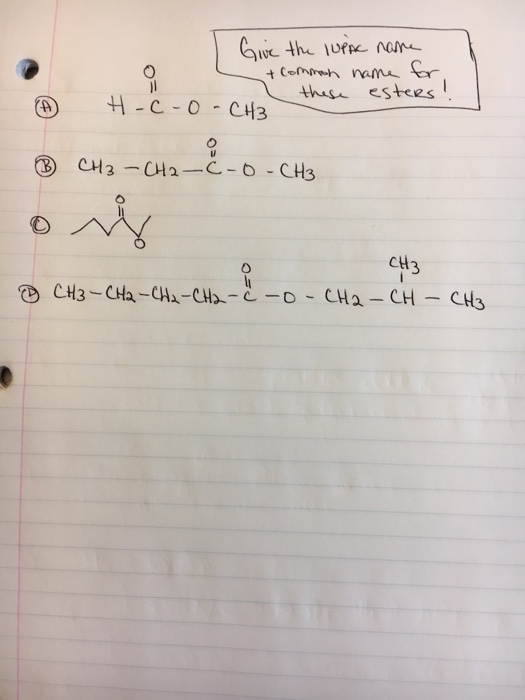 Give the IUPAC name
+ common name for
these esters!
O
||
(A) H - C - O - CH3
O
||
(B) CH3 - CH2 - C - O - CH3
O
||
(C)
O
O CH3
|| |
(D) CH3 - CH2 - CH2 - CH2 - C - O - CH2 - CH - CH3